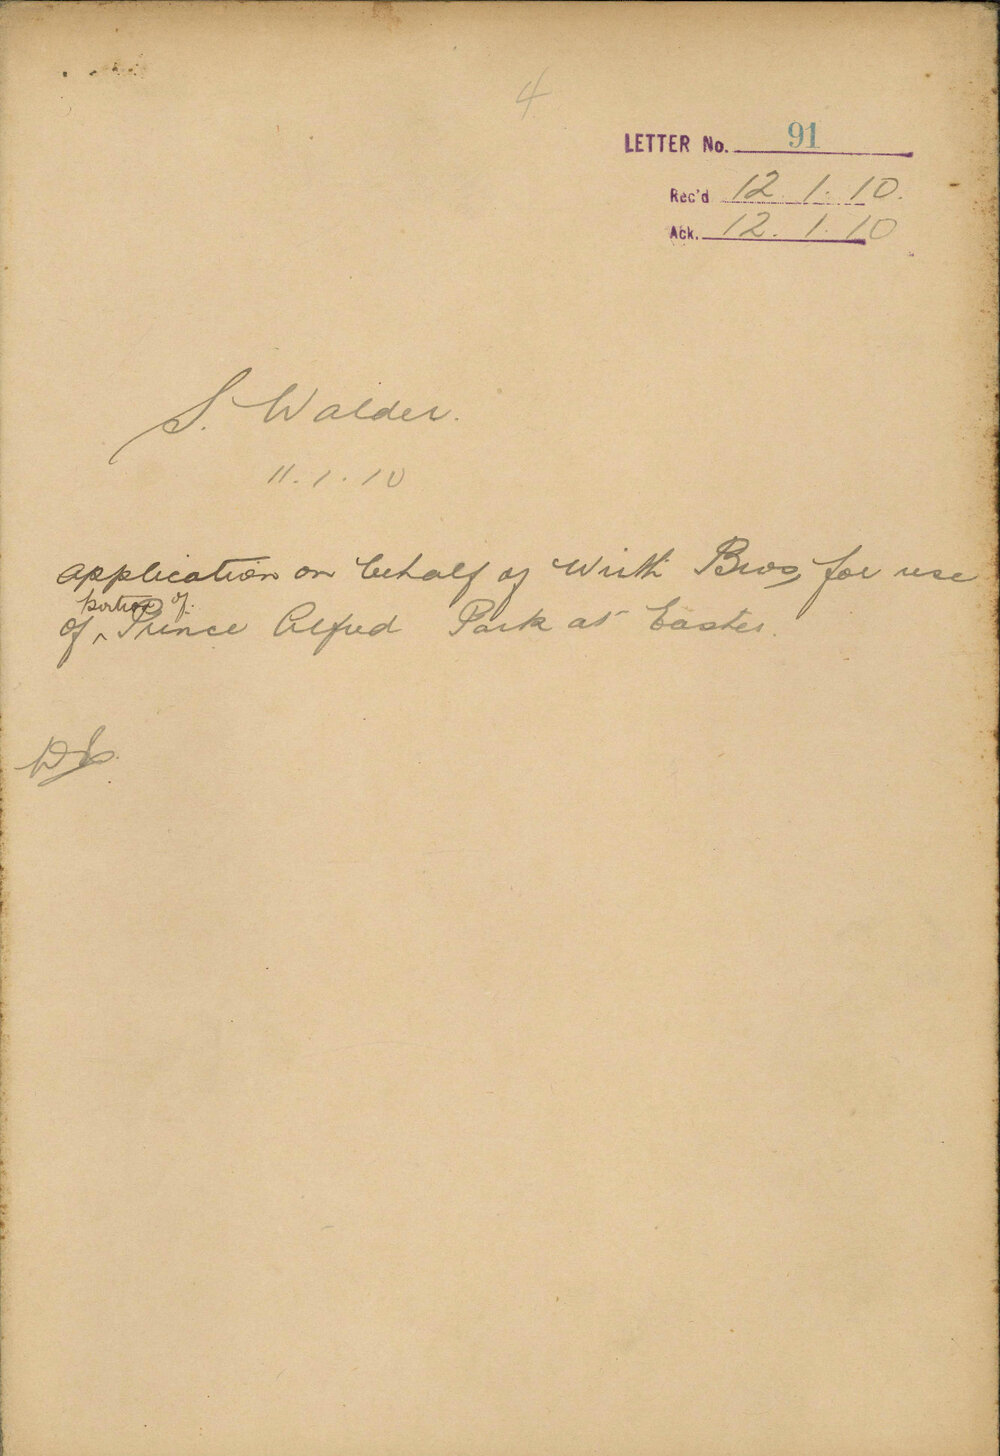 4
LETTER No. 91
Rec'd 12.1.10.
Ack. 12.1.10
S. Walder.
11.1.10
application on behalf of Wirth Bros, for use
portion of
of ^ Prince Alfred Park at Easter.